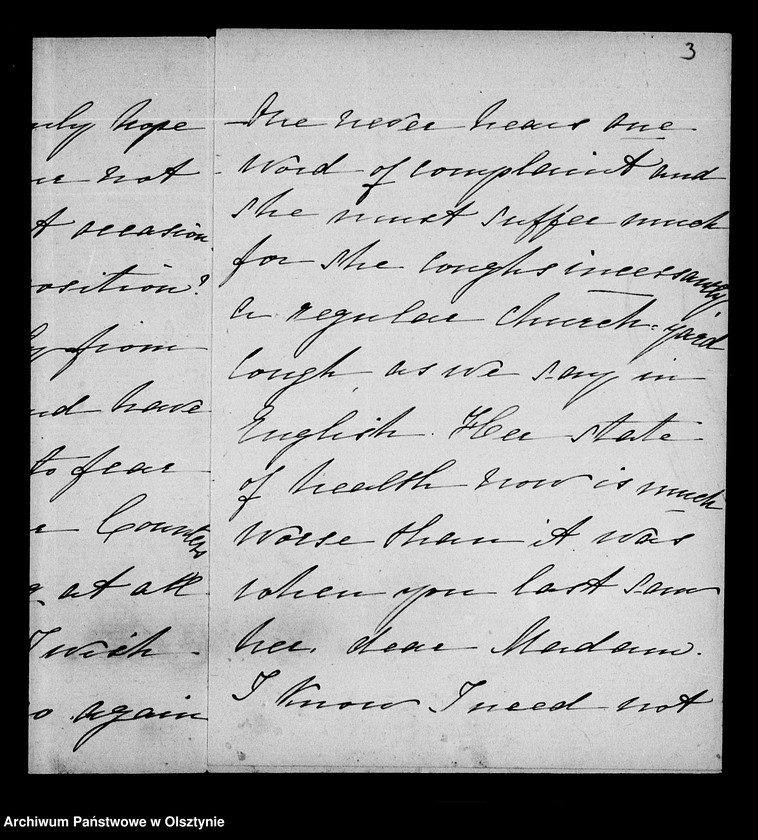 3
nly hope
not
t occasion
osition?
from
nd have
to fear
r Countess
at all
I wish
o again
One never hears one
word of complaint and
she must suffer much
for she coughs incessantly
a regular church-yard
cough, as we say in
English. Her state
of health now is much
worse than it was
when you last saw
her, dear Madam.
I know I need not
Archiwum Państwowe w Olsztynie